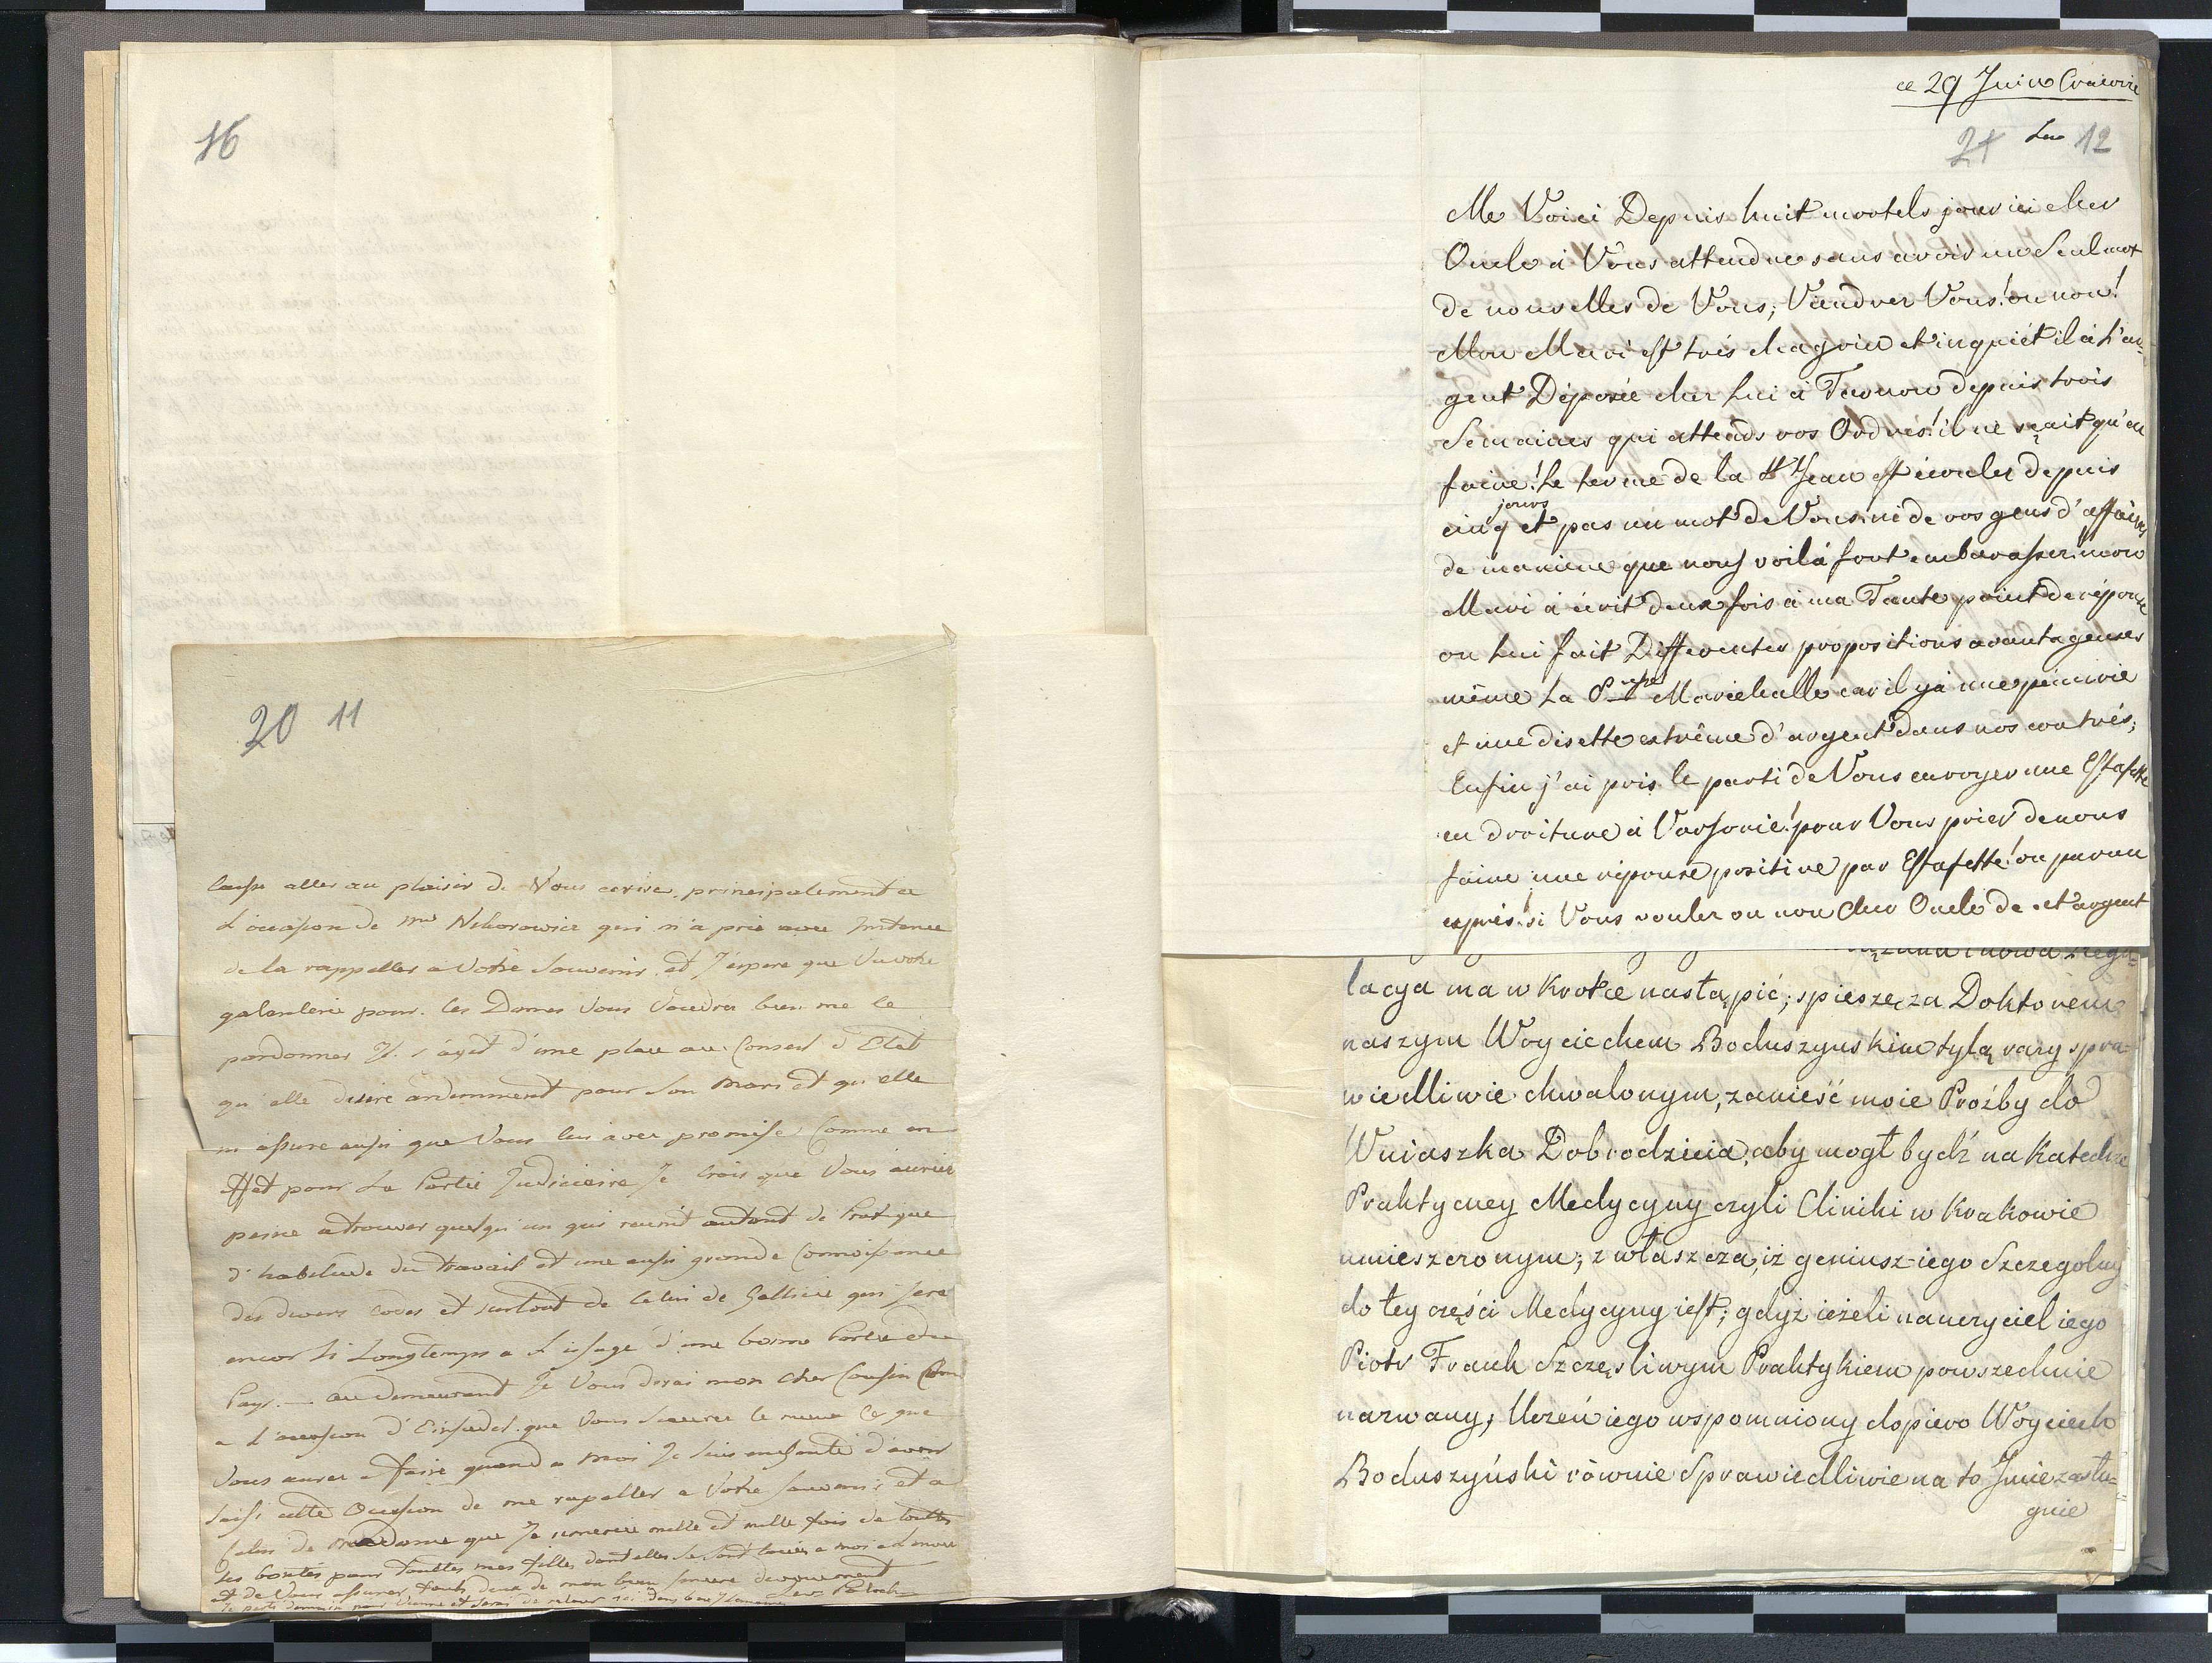 16
20 11
laisse aller au plaisir de Vous ecrire, principalement a
L'occasion de Mme Nikorowicz qui m'a prié avec Instance
de la rappeller a Votre Souvenir et J'espere que Vu votre
galanterie pour les Dames Vous Voudrez bien me le
pardonner Il s'agit d'une place au Conseil d'Etat
qu'elle desire ardemment pour Son Mari et qu'elle
m'assure aussi que Vous lui avez promise, Comme en
effet pour La Partie Judiciaire Je Crois que Vous auriez
peine a trouver quelqu'un qui reunit autant de Pratique
d'habitude du travail et une aussi grande Connoissance
des divers Codes et surtout de Celui de Gallicie qui sera
encor Si Longtemps a L'usage d'une bonne Partie du
Pays. — au demeurant Je Vous dirai mon Cher Cousin
a L'occasion d'Einsiedel que Vous Saurez le mieux Ce que
Vous aurez a faire quand a Moi Je Suis enchanté d'avoir
Saisi cette Occasion de me rapeller a Votre Souvenir et a
Celui de Madame que Je remercie mille et mille fois de toutes
ses bontés pour Touttes mes filles dont elles Se Sont louées a moi
et de Vous assurer Touts deux de mon bien Sincere devouement
Je parts demain pour Vienne et Serai de retour ici dans 6 ou 7 Semaines
ce 29 Juin
21 12
Me Voici Depuis huit mortels jour ici cher
Oncle à Vous attendre sans avoir un Seul mot
de nouvelles de Vous; Viendrer Vous! ou non!
Mon Mari est trés chagrin et inquiét il à L'ar=
gent Déposée cher Lui à Tarnow depuis trois
Semaines qui attends vos Ordres! il ne sçait qu'en
faire! Le terme de la St Jean est écouler depuis
jours
cinq et pas un mot de Vous ni de vos gens d'affaires
de maniere que nous voilà fort embarasser; mon
Mari à écrit deux fois à ma Tante point de réponse
on Lui fait Differentes propositions avantageuses
même La Psse Marechalle car il yà une pénurie
et une disette extrême d'argent dans nos contrés;
Enfin j'ai pris le parti de Vous envoyer une Estafette
en droiture à Varsovie! pour Vous prier de nous
faire une réponse positive par Estafette! ou par un
exprés! si Vous vouler ou non Cher Oncle de cet argent
lacya ma w krotce nastąpić; spieszę za Doktorem
naszym Woyciechem Boduszyńskim tylą razy spra=
wiedliwie chwalonym, zanieść moie Proźby do
Wuiaszka Dobrodzieia, aby mogł bydź na Katedrze
Praktyczney Medycyny czyli Cliniki w Krakowie
umieszczonym; zwłaszcza, iż geniusz iego Szczegolny
do tey części Medycyny iest; gdyż ieżeli nauczyciel iego
Piotr Frank Szczęśliwym Praktykiem powszechnie
nazwany; Uczeń iego wspomniony dopiero Woyciech
Boduszyński rôwnie Sprawiedliwie na to Jmie zasłu=
guie